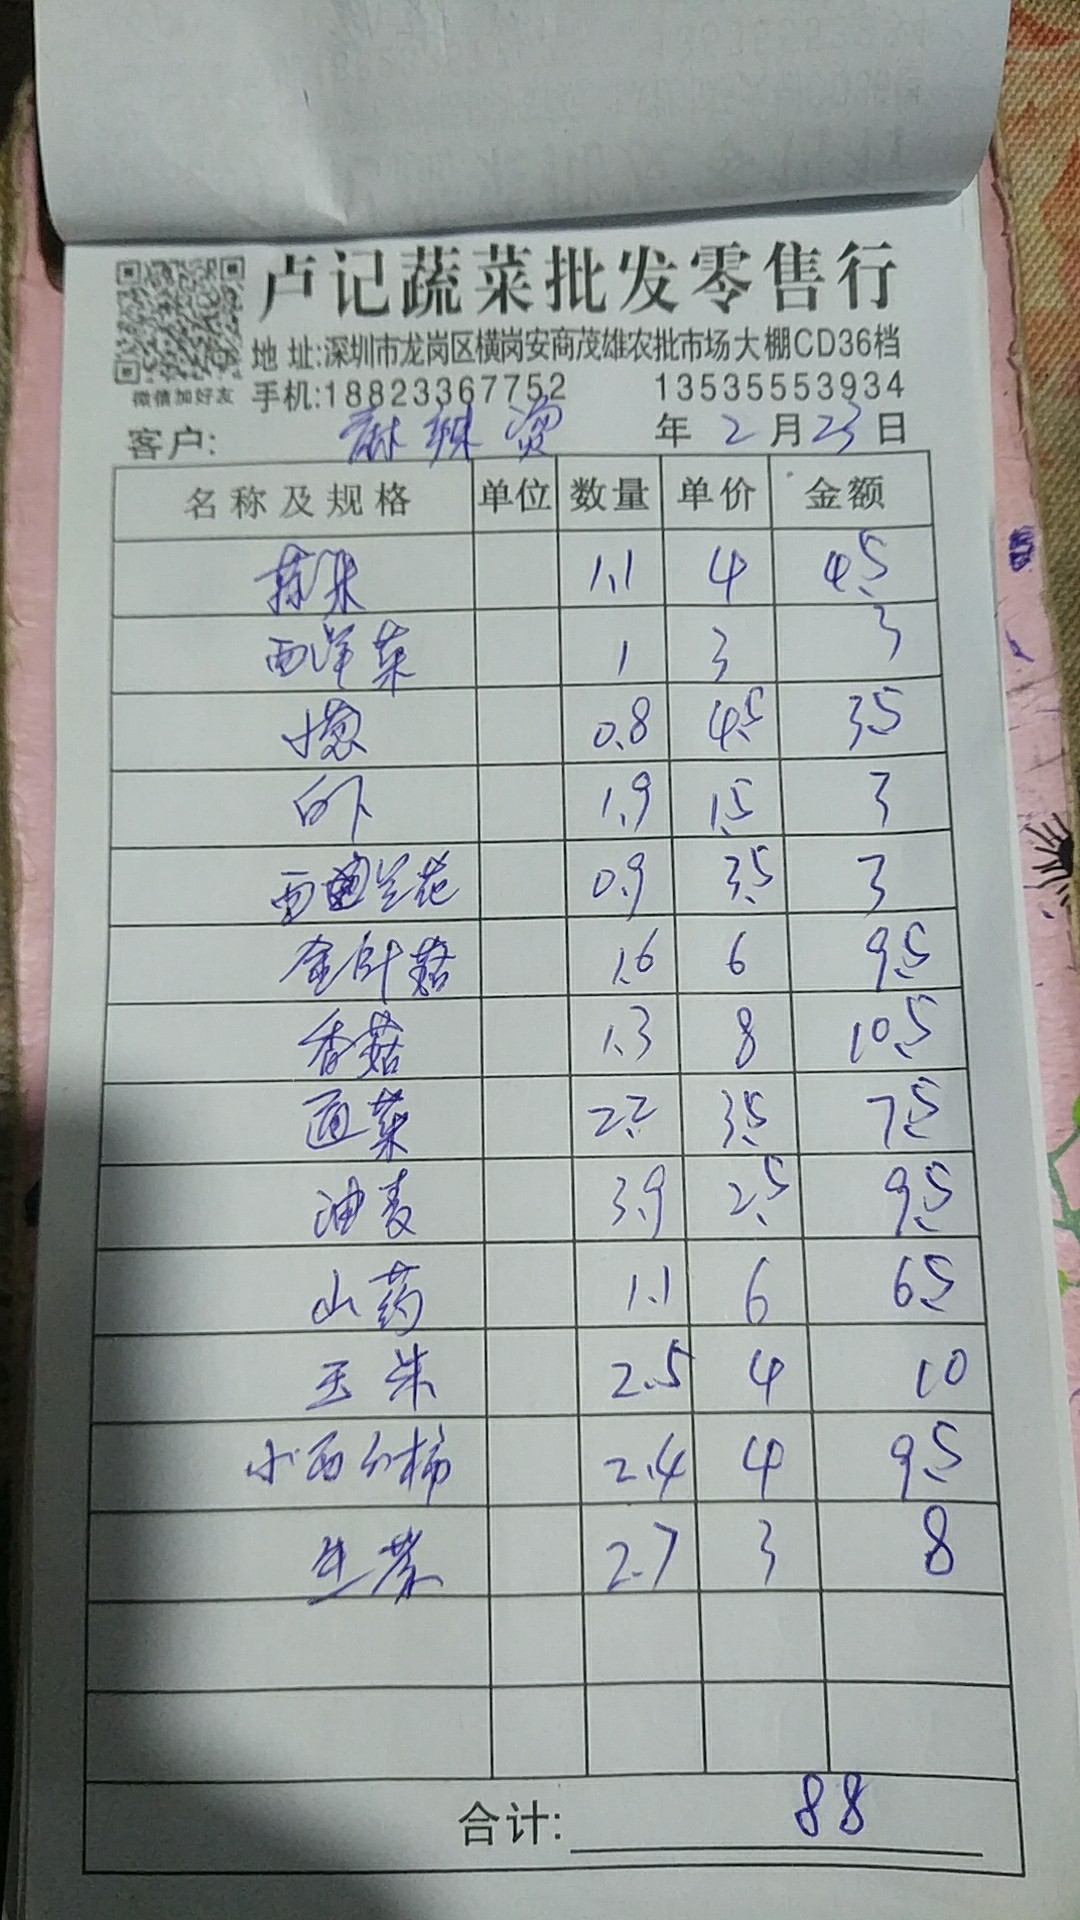 卢记蔬菜批发零售行
地址:深圳市龙岗区横岗安商茂雄农批市场大棚CD36档
微信加好友 手机:18823367752 13535553934
客户: 麻辣烫 年 2 月 23 日
名称及规格 单位 数量 单价 金额
1.1 4 4.5
西洋菜 1 3 3
小葱 0.8 4.5 3.5
白下 1.9 1.5 3
西兰花 0.9 3.5 3
金针菇 1.6 6 9.5
香菇 1.3 8 10.5
菜 2.2 3.5 7.5
油麦 3.9 2.5 9.5
山药 1.1 6 6.5
玉米 2.5 4 10
小西红柿 2.4 4 9.5
生菜 2.7 3 8
合计: 88